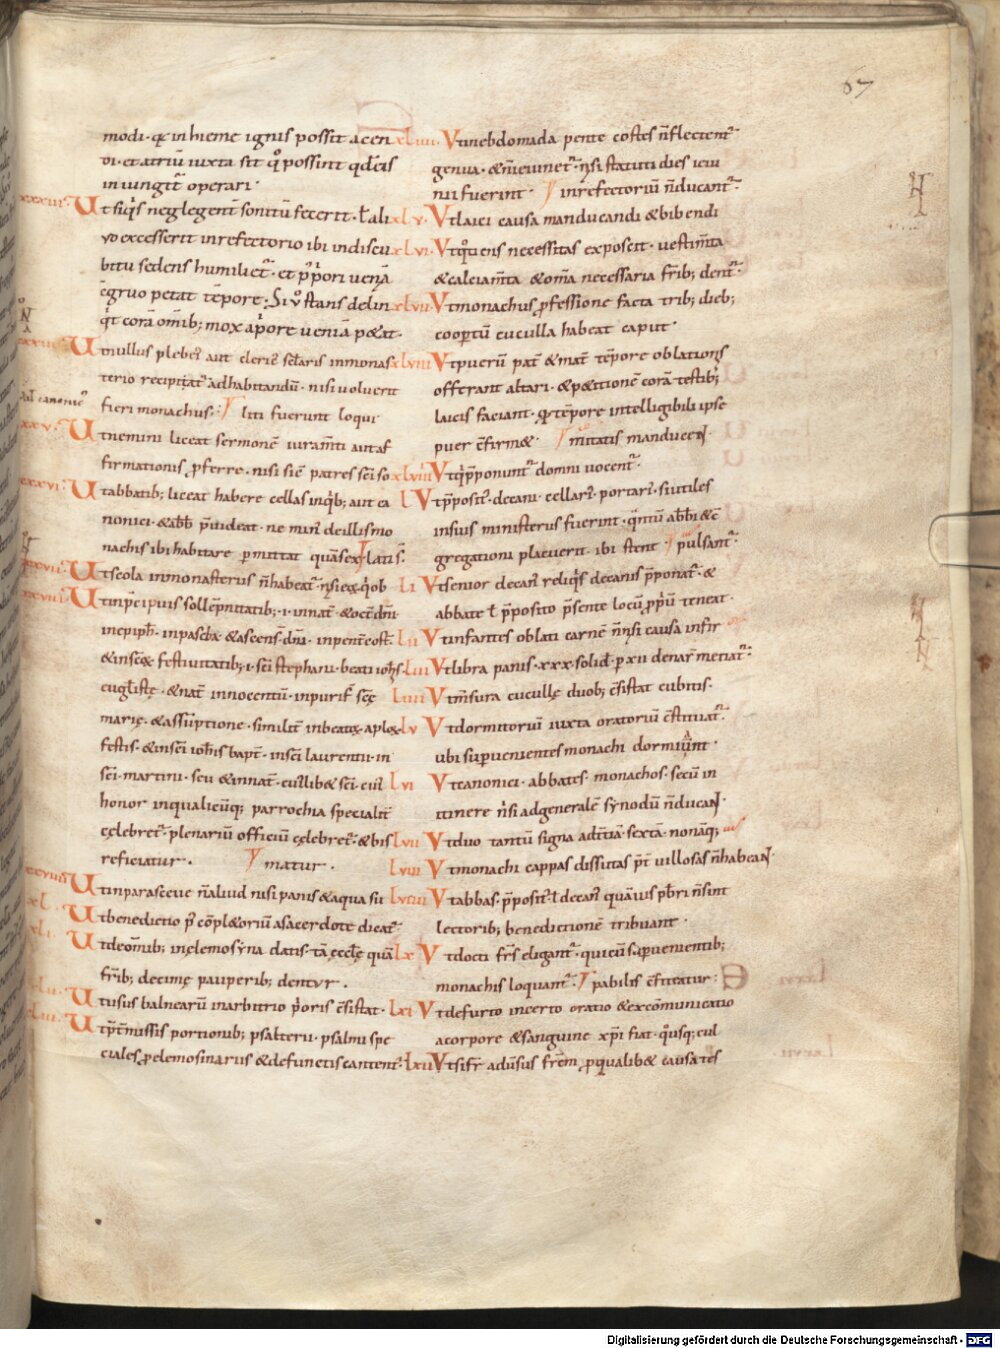 67
modi · & in hieme ignis possit accen
di · et atriū iuxta sit q° possint qd eis
iniungit̄ operari ·
xxxiii · Ut siq̇s neglegent̄ sonitū fecerit · ł ali
vo excesserit in refectorio ibi indiscu
bitu sedens humiliet̄ · et p̄pori ueniā
c̄gruo petat tēpore · Si v° stans delin
q̇t corā omīb; mox a p̄ore ueniā p&at ·
Ut nullus plebei aut cleric scłaris in monas
terio recipiat̄ ad habitandū · nisi uoluerit
fieri monachus · liti fuerunt loqui
xxv · Ut nemini liceat sermonē iuramīti aut af
firmationis p̱ferre · nisi sic patres sc̄i so
xxxvi · Ut abbatib; liceat habere cellas in q̇b; aut ca
nonici · & abb p̄uideat · ne min̄ de illis mo
nachis ibi habitare permittat quā sex · latis
Ut scola in monasteriis n̄ habeat̄ · nisi eox̨ q̇ ob
Ut in p̄cipuis sollēpnitatib; · i · in nat̄ · & oct̄ dn̄i
in epiph̄ · in pascha & ascens̄ dn̄i · in pentecost̄
& in scōx̨ festiuitatib; · i · sc̄i stephani · beati ioh̄s ·
euḡlistę · & nat̄ innocentū · in purif̄ scę
marię · & assūptione · similit̄ in beatox̨ aplox̨
festis · & in sc̄i ioh̄is bapt̄ · in sc̄i laurentii · in
sc̄i martini · seu & in nat̄ · cuilib& sc̄i cui
honor in qualicūq; parrochia specialit̄
cęlebret̄ · plenariū officiū cęlebret̄ · & bis
reficiatur · matur ·
Ut in parasceue n̄ aliud nisi panis & aqua su
xl · Ut benedictio p̄ cōpl&oriū a sacerdote dicat̄ ·
xli · Ut de omīb; in ęlemosyna datis · tā ęcclę quā
fr̄ib; decimę pauperib; dentur ·
xlii · Ut usus balnearū in arbitrio p̄oris c̄sistat ·
xliii · Ut p̄t̄missis portionib; psalterii · psalmi spe
ciales p̱ elemosinariis & defunctis cantent̄ ·
xliiii · Ut in ebdomada pentecostes n̄ flectent̄
genua · & n̄ ieiunet̄ · n̄si statuti dies ieiu
nii fuerint · in refectoriū n̄ ducant̄ ·
xlv · Ut laici causa manducandi & bibendi
xlvi · Ut q°tiens necessitas exposcit · uestim̄ta
& calciam̄ta & om̄a necessaria fr̄ib; dent̄ ·
xlvii · Ut monachus p̱fessione facta trib; dieb;
coop̱tū cuculla habeat caput ·
xlviii Ut puerū pat̄ & mat̄ tēpore oblationis
offerant altari · & p&itionē corā testib;
laicis faciant · q̄ tēpore intelligibili ipse
puer c̄firm& · mutatis manducen̄t
xlviiii Ut q̇ p̄ponunt̄ domni uocent̄ ·
l Ut p̄posit̄ · decani · cellari · portari · si utiles
in suis ministeriis fuerint · q̄ntū abb̄i & c̄
gregationi placuerit · ibi stent · pulsant̄ ·
li Ut senior decan̄ reliq̇s decanis p̄ponat̄ · &
abbate ł p̄posito p̄sente locū p̱p̄ū teneat ·
lii Ut infantes oblati carnē n̄ n̄si causa infir
liii Ut libra panis · xxx · solid̄ p̱ xii denar̄ metiat̄ ·
liiii Ut m̄sura cucullę duob; c̄sistat cubitis ·
lv Ut dormitoriū iuxta oratoriū c̄stituat̄ ·
ubi sup̱uenientes monachi dormiant ·
lvi Ut canonici · abbates · monachos · secū in
itinere n̄si ad generalē synodū n̄ ducant ·
lvii Ut duo tantū signa ad t̄tiā · sextā · nonāq;
lviii Ut monachi cappas dissutas p̄t̄ uillosas n̄ habeant
lviiii Ut abbas · p̄posit̄ · ł decan̄ quāuis pb̄ri n̄ sint
lectorib; benedictionē tribuant ·
lx Ut docti fr̄s eligant̄ · qui cū sup̱uenientib;
monachis loquant̄ · pabilis c̄ficeatur :
lxi Ut defūcto incerto oratio & excōmunicatio
a corpore & sanguine xp̄i fiat · q°usq; cul
lxii Ut si fr̄ adūsus fr̄em p̱ qualib& causa tes
Digitalisierung gefördert durch die Deutsche Forschungsgemeinschaft - DFG